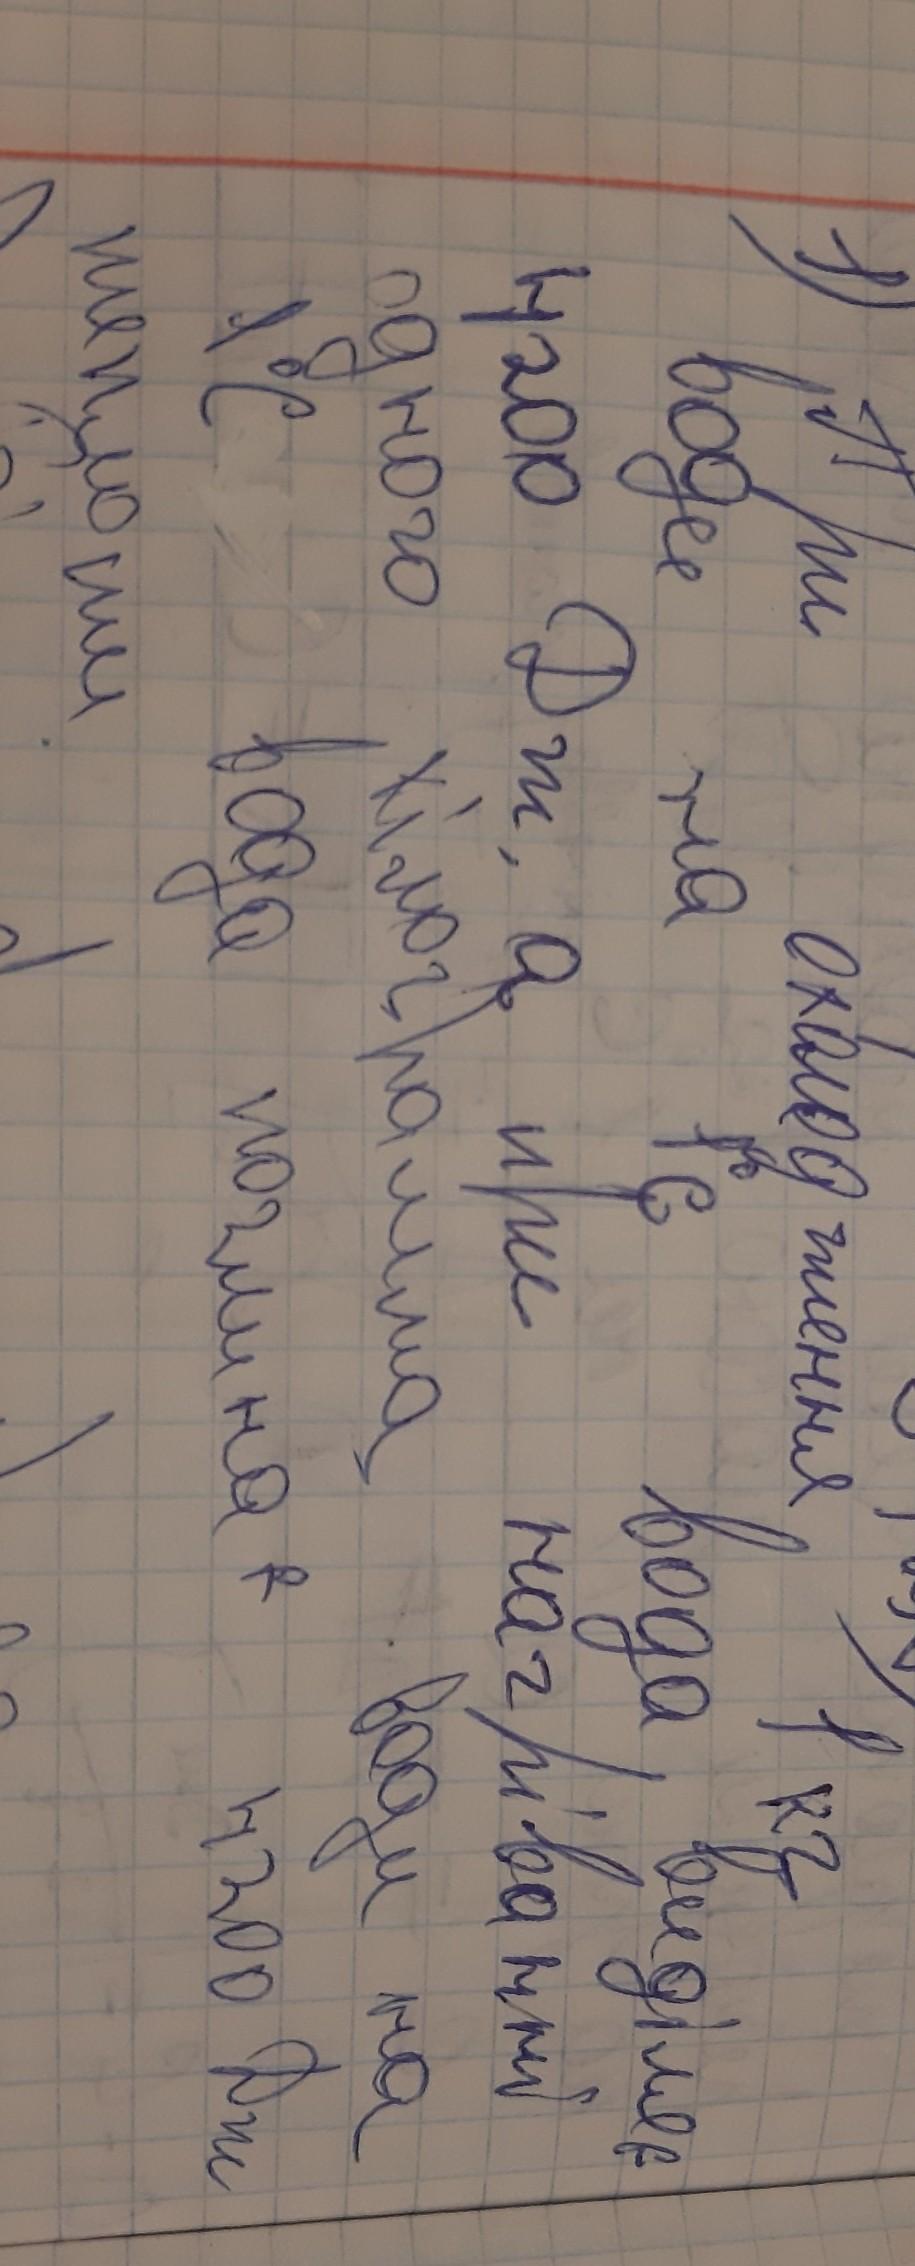 1) При охолодження 1 кг
води на 1°С вода виділяє
4200 Дж, а при нагріванні
одного кілограмма води на
1°С вода поглинає 4200 Дж
теплоти